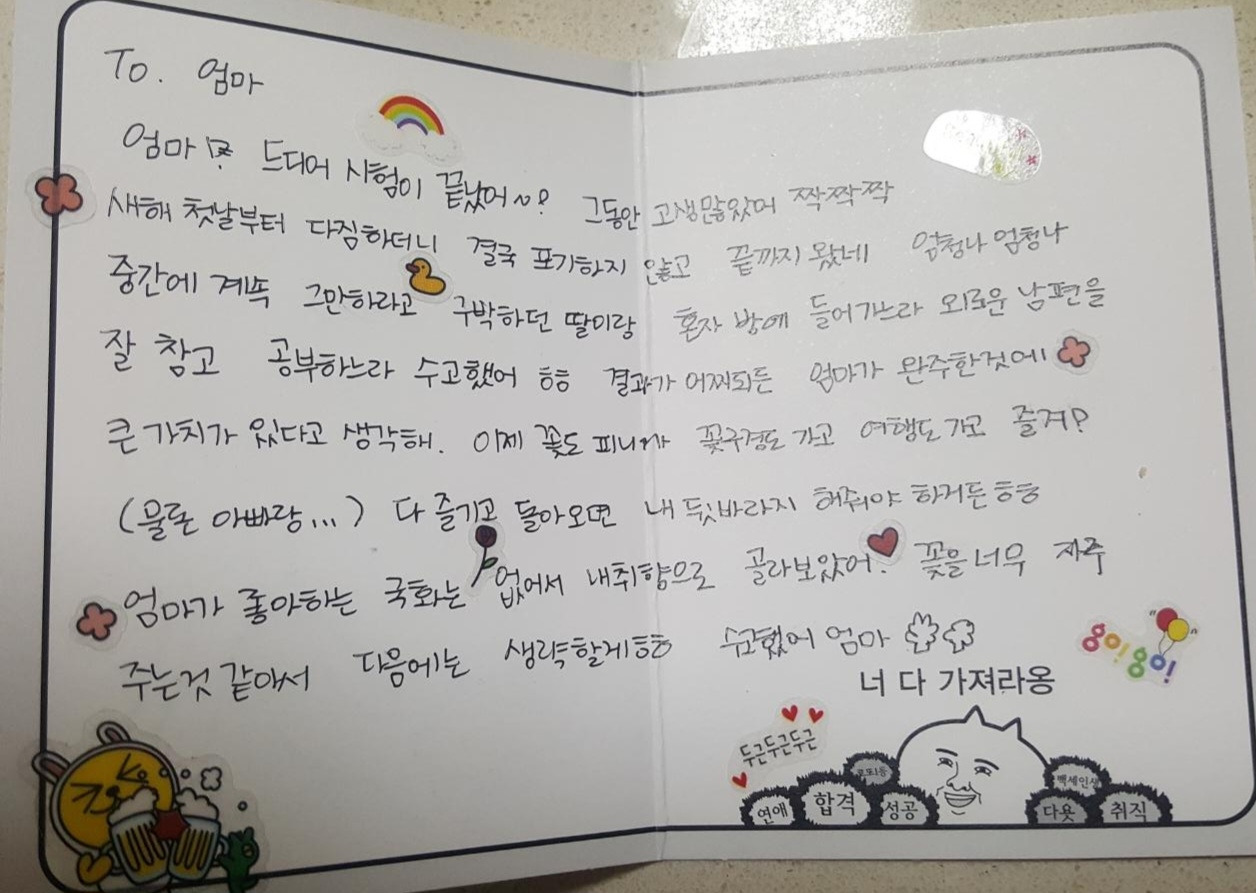 To. 엄마
엄마 드디어 시험이 끝났어~? 그동안 고생많았어 짝짝짝
새해 첫날부터 다짐하더니 결국 포기하지 않고 끝까지 왔네 엄청나 엄청나
중간에 계속 그만하라고 구박하던 딸이랑 혼자 방에 들어가느라 외로운 남편을
잘 참고 공부하느라 수고했어 ㅎㅎ 결과가 어찌되든 엄마가 완주한것에
큰 가치가 있다고 생각해. 이제 꽃도 피니까 꽃구경도 가고 여행도 가고 즐겨?
(물론 아빠랑...) 다 즐기고 돌아오면 내 뒷바라지 해줘야 하거든ㅎㅎ
엄마가 좋아하는 국화는 없어서 내취향으로 골라보았어. 꽃을 너무 자주
주는것 같아서 다음에는 생략할게ㅎㅎ 수고했어 엄마
너 다 가져라옹
두근두근두근
로또1등
백세인생
연애 합격 성공 다욧 취직